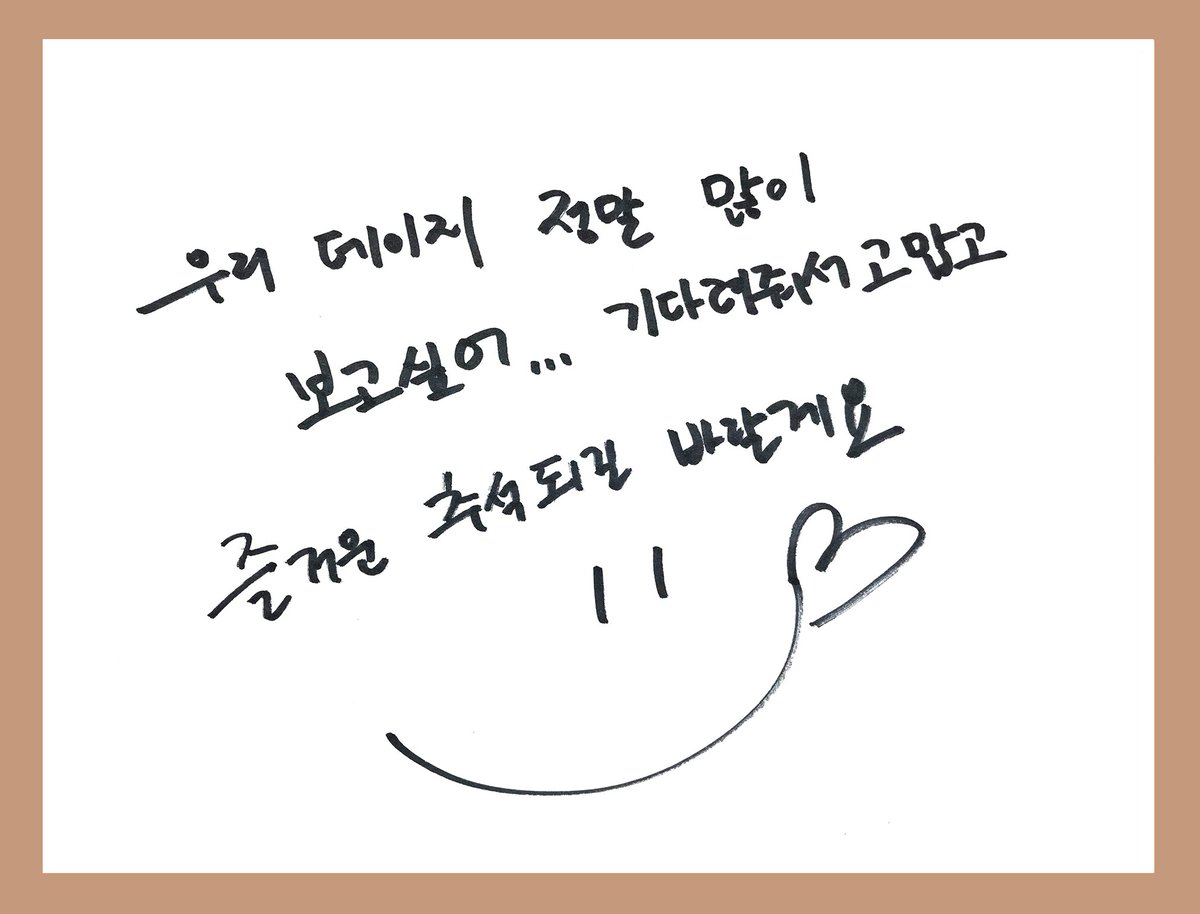 우리 데이지 정말 많이
보고싶어... 기다려줘서 고맙고
즐거운 추석되길 바랄게요